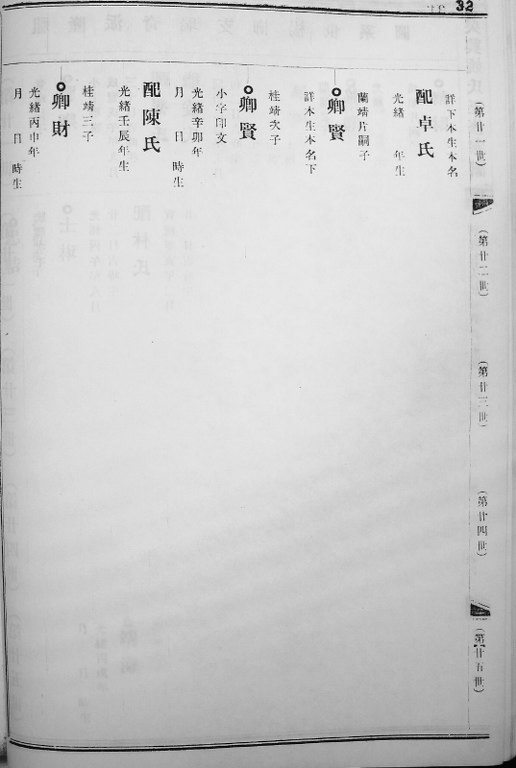 32
(第廿一世)
(第廿二世)
(第廿三世)
(第廿四世)
(第廿五世)
詳下本生本名
配卓氏
光緒 年生
蘭靖片嗣子
卿賢
詳本生本名下
桂靖次子
卿賢
小字印文
光緒辛卯年
月 日 時生
配陳氏
光緒壬辰年生
桂靖三子
卿財
光緒丙申年
月 日 時生